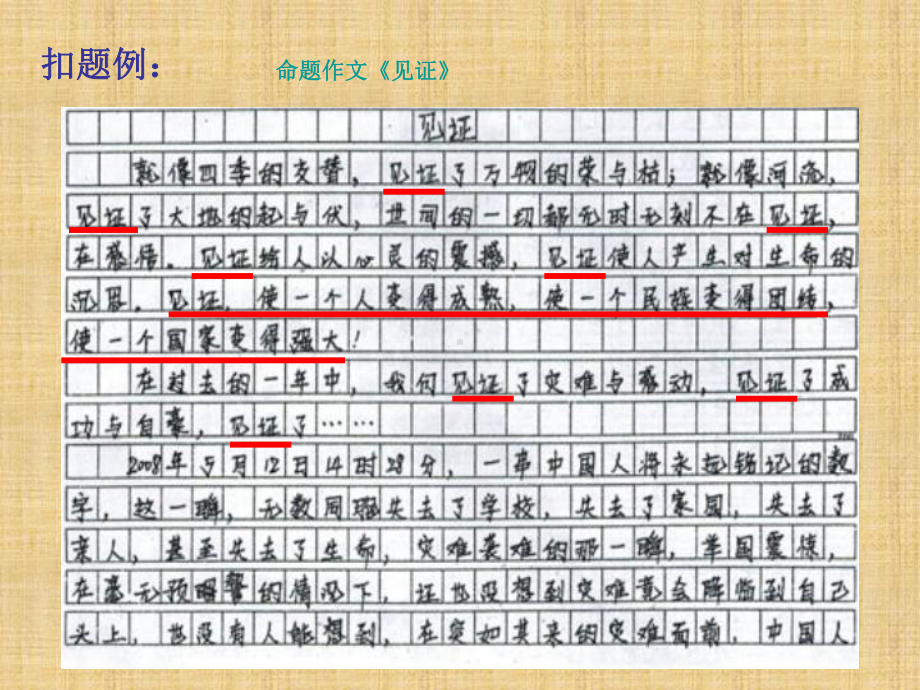 扣题例：
命题作文《见证》
见证
就像四季的交替，见证了万物的荣与枯；就像河流，
见证了大地的起与伏，世间的一切都无时无刻不在见证，
在感悟。见证给人以心灵的震撼，见证使人产生对生命的
沉思。见证，使一个人变得成熟，使一个民族变得团结，
使一个国家变得强大！
在过去的一年中，我们见证了灾难与感动，见证了成
功与自豪，见证了……
2008年5月12日14时28分，一串中国人将永远铭记的数
字，这一瞬，无数同胞失去了学校，失去了家园，失去了
亲人，甚至失去了生命，灾难袭难的那一瞬，举国震惊，
在毫无预警的情况下，证也没想到灾难竟会降临到自己
头上，也没有人能想到，在突如其来的灾难面前，中国人